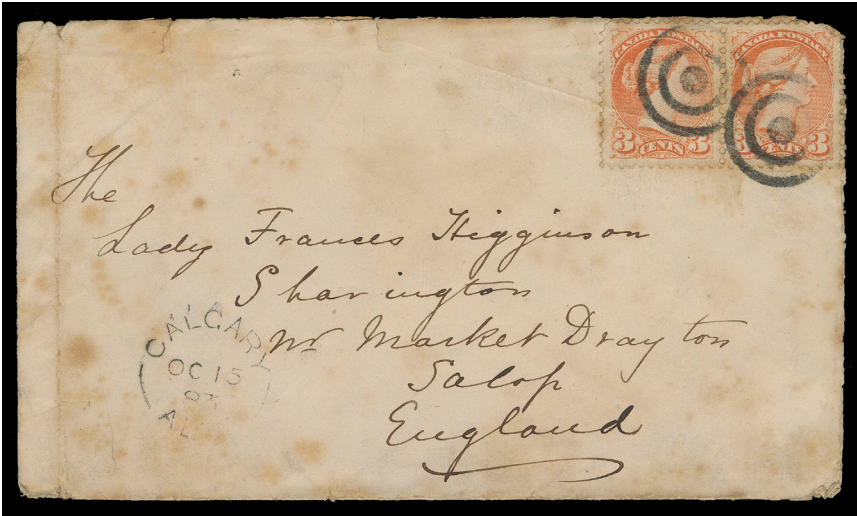 CANADA POSTAGE CANADA POSTAGE
3 CENTS 3 3 CENTS 3
The
Lady Frances Higginson
Sharington
nr Market Drayton
Salop
England
CALGARY
OC 15
AL